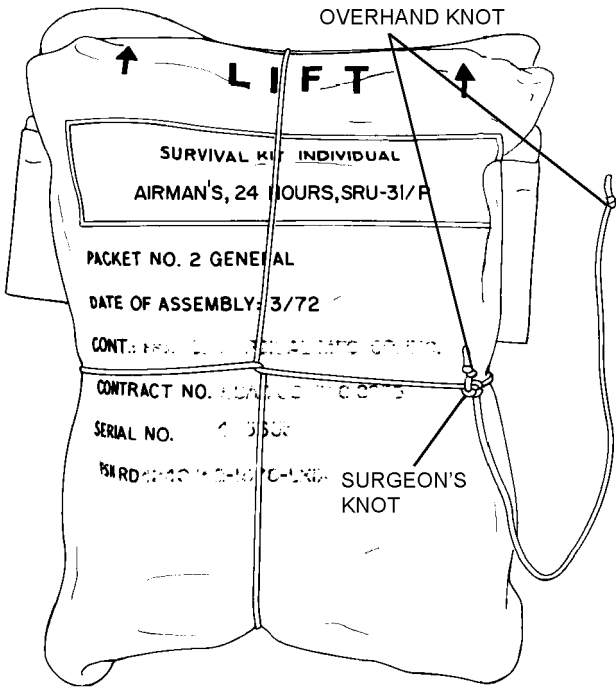 OVERHAND KNOT
LIFT
SURVIVAL KIT INDIVIDUAL
AIRMAN'S, 24 HOURS, SRU-31/P
PACKET NO. 2 GENERAL
DATE OF ASSEMBLY: 3/72
CONT.:
CONTRACT NO.
SERIAL NO.
SURGEON'S
KNOT